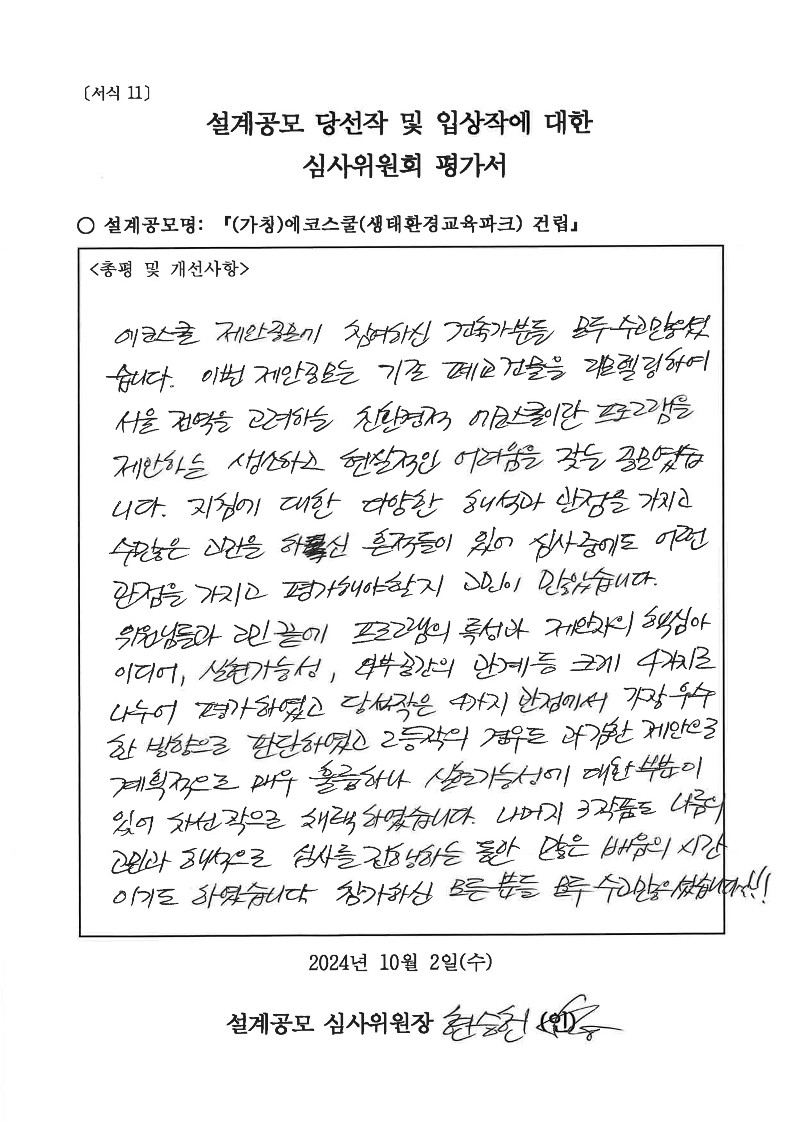 〔서식 11〕
설계공모 당선작 및 입상작에 대한
심사위원회 평가서
○ 설계공모명: 『(가칭)에코스쿨(생태환경교육파크) 건립』
<총평 및 개선사항>
에코스쿨 제안공모에 참여하신 건축가분들 모두 수고많으셨
습니다. 이번 제안공모는 기존 폐교건물을 리모델링하여
서울 전역을 고려하는 친환경적 에코스쿨이란 프로그램을
제안하는 생소하고 현실적인 어려움을 갖는 공모였습
니다. 지침에 대한 다양한 해석과 관점을 가지고
수많은 고민을 하신 흔적들이 있어 심사중에도 어떤
관점을 가지고 평가해야할지 고민이 많았습니다.
위원님들과 고민 끝에 프로그램의 특성과 제안자의 핵심아
이디어, 실현가능성, 외부공간의 관계 등 크게 4가지로
나누어 평가하였고 당선작은 4가지 관점에서 가장 우수
한 방향으로 판단하였고 2등작의 경우도 과감한 제안으로
계획적으로 매우 훌륭하나 실현가능성에 대한 부분이
있어 차선작으로 채택하였습니다. 나머지 3작품도 나름의
고민과 해석으로 심사를 진행하는 동안 많은 배움의 시간
이기도 하였습니다 참가하신 모든 분들 모두 수고많으셨습니다!!!
2024년 10월 2일(수)
설계공모 심사위원장 (인)